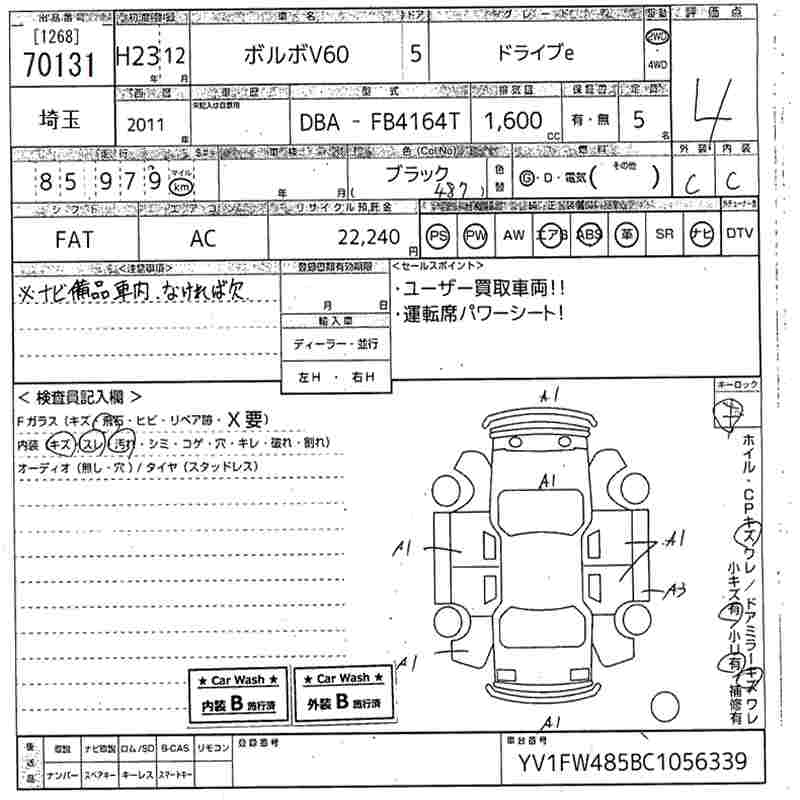 出品番号 初度登録 車名 ドア グレード 駆動 評価点
[1268]
70131 H23年 12月 ボルボV60 5 ドライブe 2WD・4WD 4
西暦 車歴 型式 排気量 保証書 定員
埼玉 2011年 未記入は自家用 DBA - FB4164T 1,600cc 有・無 5名
走行 車検 色(ColNo) 燃料 外装 内装
85979 マイル km 年 月 ブラック (487) 色替 G・D・電気( その他 ) C C
シフト エアコン リサイクル預託金 純正装備
FAT AC 22,240円 PS PW AW エアB ABS 革 SR ナビ DTV
<注意事項> 登録書類有効期限 <セールスポイント>
※ナビ備品車内なければ欠 ・ユーザー買取車両!!
月 日 ・運転席パワーシート!
輸入車
ディーラー・並行
左H ・ 右H
<検査員記入欄> キーロック
Fガラス(キズ・飛石・ヒビ・リペア跡・X要)
内装(キズ・スレ・汚れ・シミ・コゲ・穴・キレ・破れ・割れ)
オーディオ(無し・穴)/タイヤ(スタッドレス)
A1
A1
A1
A1
A3
A1
A1
ホイル・CPキズワレ/ドアミラーキズワレ
小キズ有/小U有/補修有
★ Car Wash ★ ★ Car Wash ★
内装 B 施行済 外装 B 施行済
後送品 取説 ナビ取説 ロム/SD B-CAS リモコン 登録番号 車台番号
ナンバー スペアキー キーレス スマートキー YV1FW485BC1056339